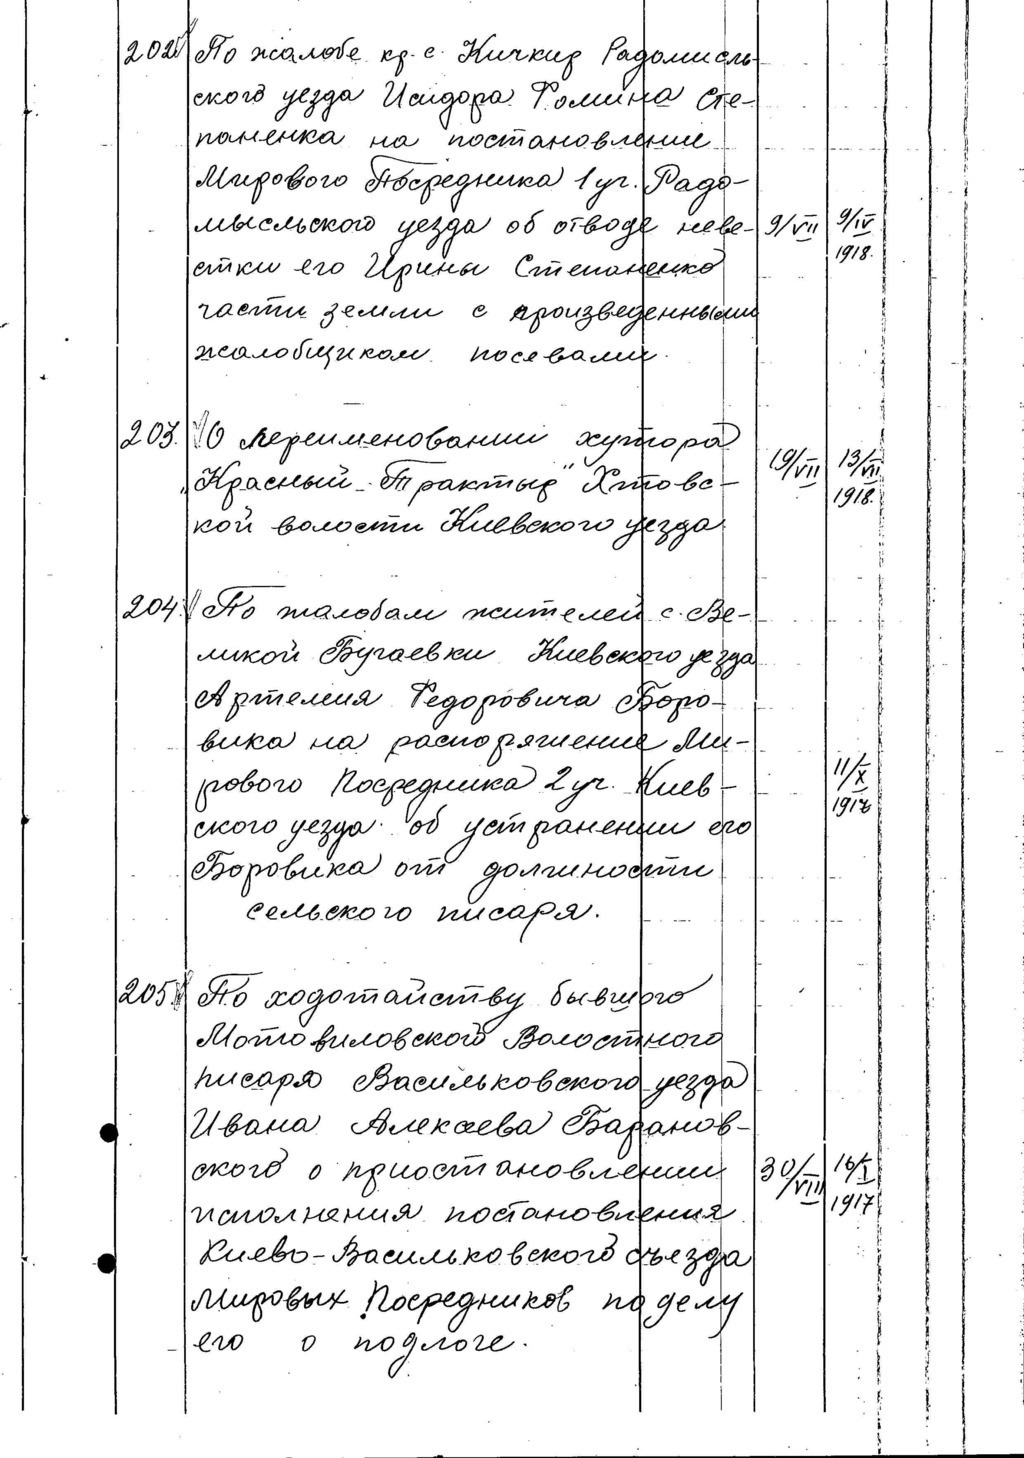 202. По жалобе кр. с. Кичкир Радомисль-
ского уезда Исидора Фомина Сте-
паненка на постановление
Мирового Посредника 1 уч. Радо-
мысльского уезда об отводе неве- 9/VII 9/IV
стки его Ирины Степаненко 1918.
части земли с произведенными
жалобщиком посевами.
203. О переименовании хутора
„Красный-Трактыр" Хотовс- 19/VII 13/VII
кой волости Киевского уезда 1918.
204. По жалобам жителей с. Ве-
ликой Бугаевки Киевского уезда
Артемия Федоровича Боро-
вика на распоряжение Ми-
рового Посредника 2 уч. Киев- 11/X
ского уезда об устранении его 1918
Боровика от должности
сельского писаря.
205. По ходотайству бывшого
Мотовиловского Волостного
писаря Васильковского уезда
Ивана Алексеева Баранов-
ского о приостановлении 30/VIII 16/I
исполнения постановления 1917
Киево-Васильковского съезда
Мировых Посредников по делу
его о подлоге.